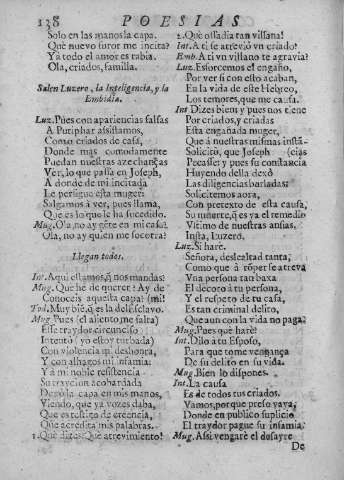 138 POESIAS
Solo en las manos la capa.
Què nuevo furor me incita?
Ya todo el amor es rabia.
Ola, criados, familia.
Salen Luzero, la Inteligencia, y la
Embidia.
Luz. Pues con apariencias falsas
A Putiphar assistamos,
Como criados de casa,
Donde mas comodamente
Puedan nuestras azechanças
Ver, lo que passa en Joseph,
A donde de mi incitada
Le persigue esta muger:
Salgamos à ver, pues llama,
Que es lo que le ha sucedido.
Mug. Ola, no ay gẽte en mi casa?
Ola, no ay quien me socorra?
Llegan todos.
Int. Aqui estamos, q̃ nos mandas?
Mug. Què he de querer? Ay de
Conoceis aquesta capa? (mi!
Tod. Muy biẽ, q̃ es la del esclavo.
Mug. Pues (el aliento me falta)
Esse traydor circunciso
Intentò (yo estoy turbada)
Con violencia mi deshonra,
Y con alhagos mi infamia:
Y à mi noble resistencia
Su traycion acobardada
Dexò la capa en mis manos,
Viendo, que ya vozes daba,
Que es testigo de creencia,
Que acredita mis palabras.
1. Què dizes? Què atrevimiento!
2. Què ossadia tan villana!
Int. A ti se atreviò vn criado!
Emb. A ti vn villano te agravia?
Luz. Esforcemos el engaño,
Por ver si con esto acaban,
En la vida de este Hebreo,
Los temores, que me causa.
Int. Dizes bien; y pues nos tiene
Por criados, y criadas
Esta engañada muger,
Que à nuestras mismas instã-
Solicitò, que Joseph (cias
Pecasse; y pues su constancia
Huyendo della dexò
Las diligencias burladas:
Solicitemos aora,
Con pretexto de esta causa,
Su muerte, q̃ es ya el remedio
Vltimo de nuestras ansias.
Insta, Luzero.
Luz. Si harè.
Señora, deslealtad tanta,
Como que à rõper se atreva
Vna persona tan baxa
El decoro à tu persona,
Y el respeto de tu casa,
Es tan criminal delito,
Que aun con la vida no paga.
Mug. Pues què harè?
Int. Dilo à tu Esposo,
Para que tome vengança
De su delito en su vida.
Mug. Bien lo dispones.
Int. La causa
Es de todos tus criados.
Vamos, porque preso vaya,
Donde en publico suplicio
El traydor pague su infamia.
Mug. Assi vengarè el desayre
De